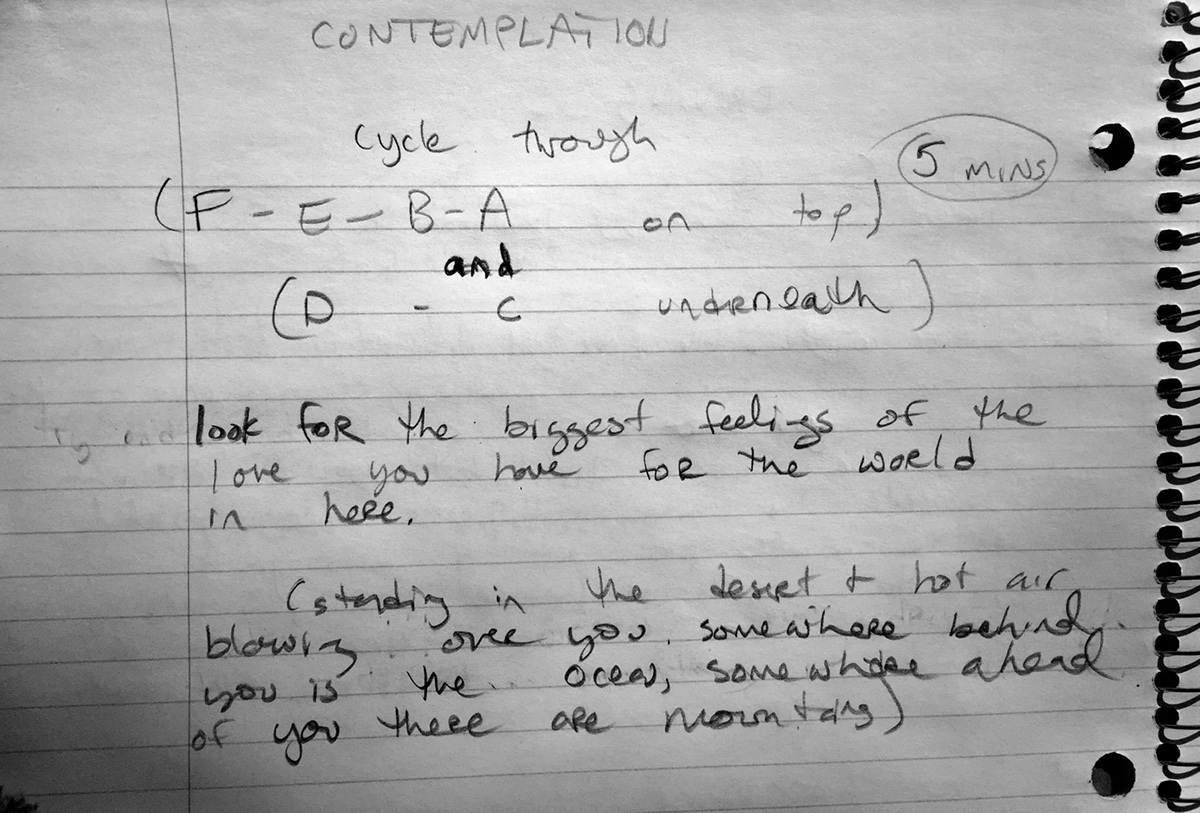 CONTEMPLATION
cycle through
5 MINS
(F - E - B - A on top)
and
(D - C underneath)
look for the biggest feelings of the
love you have for the world
in here.
(standing in the desert + hot air
blowing over you. somewhere behind
you is the ocean, somewhere ahead
of you there are mountains)